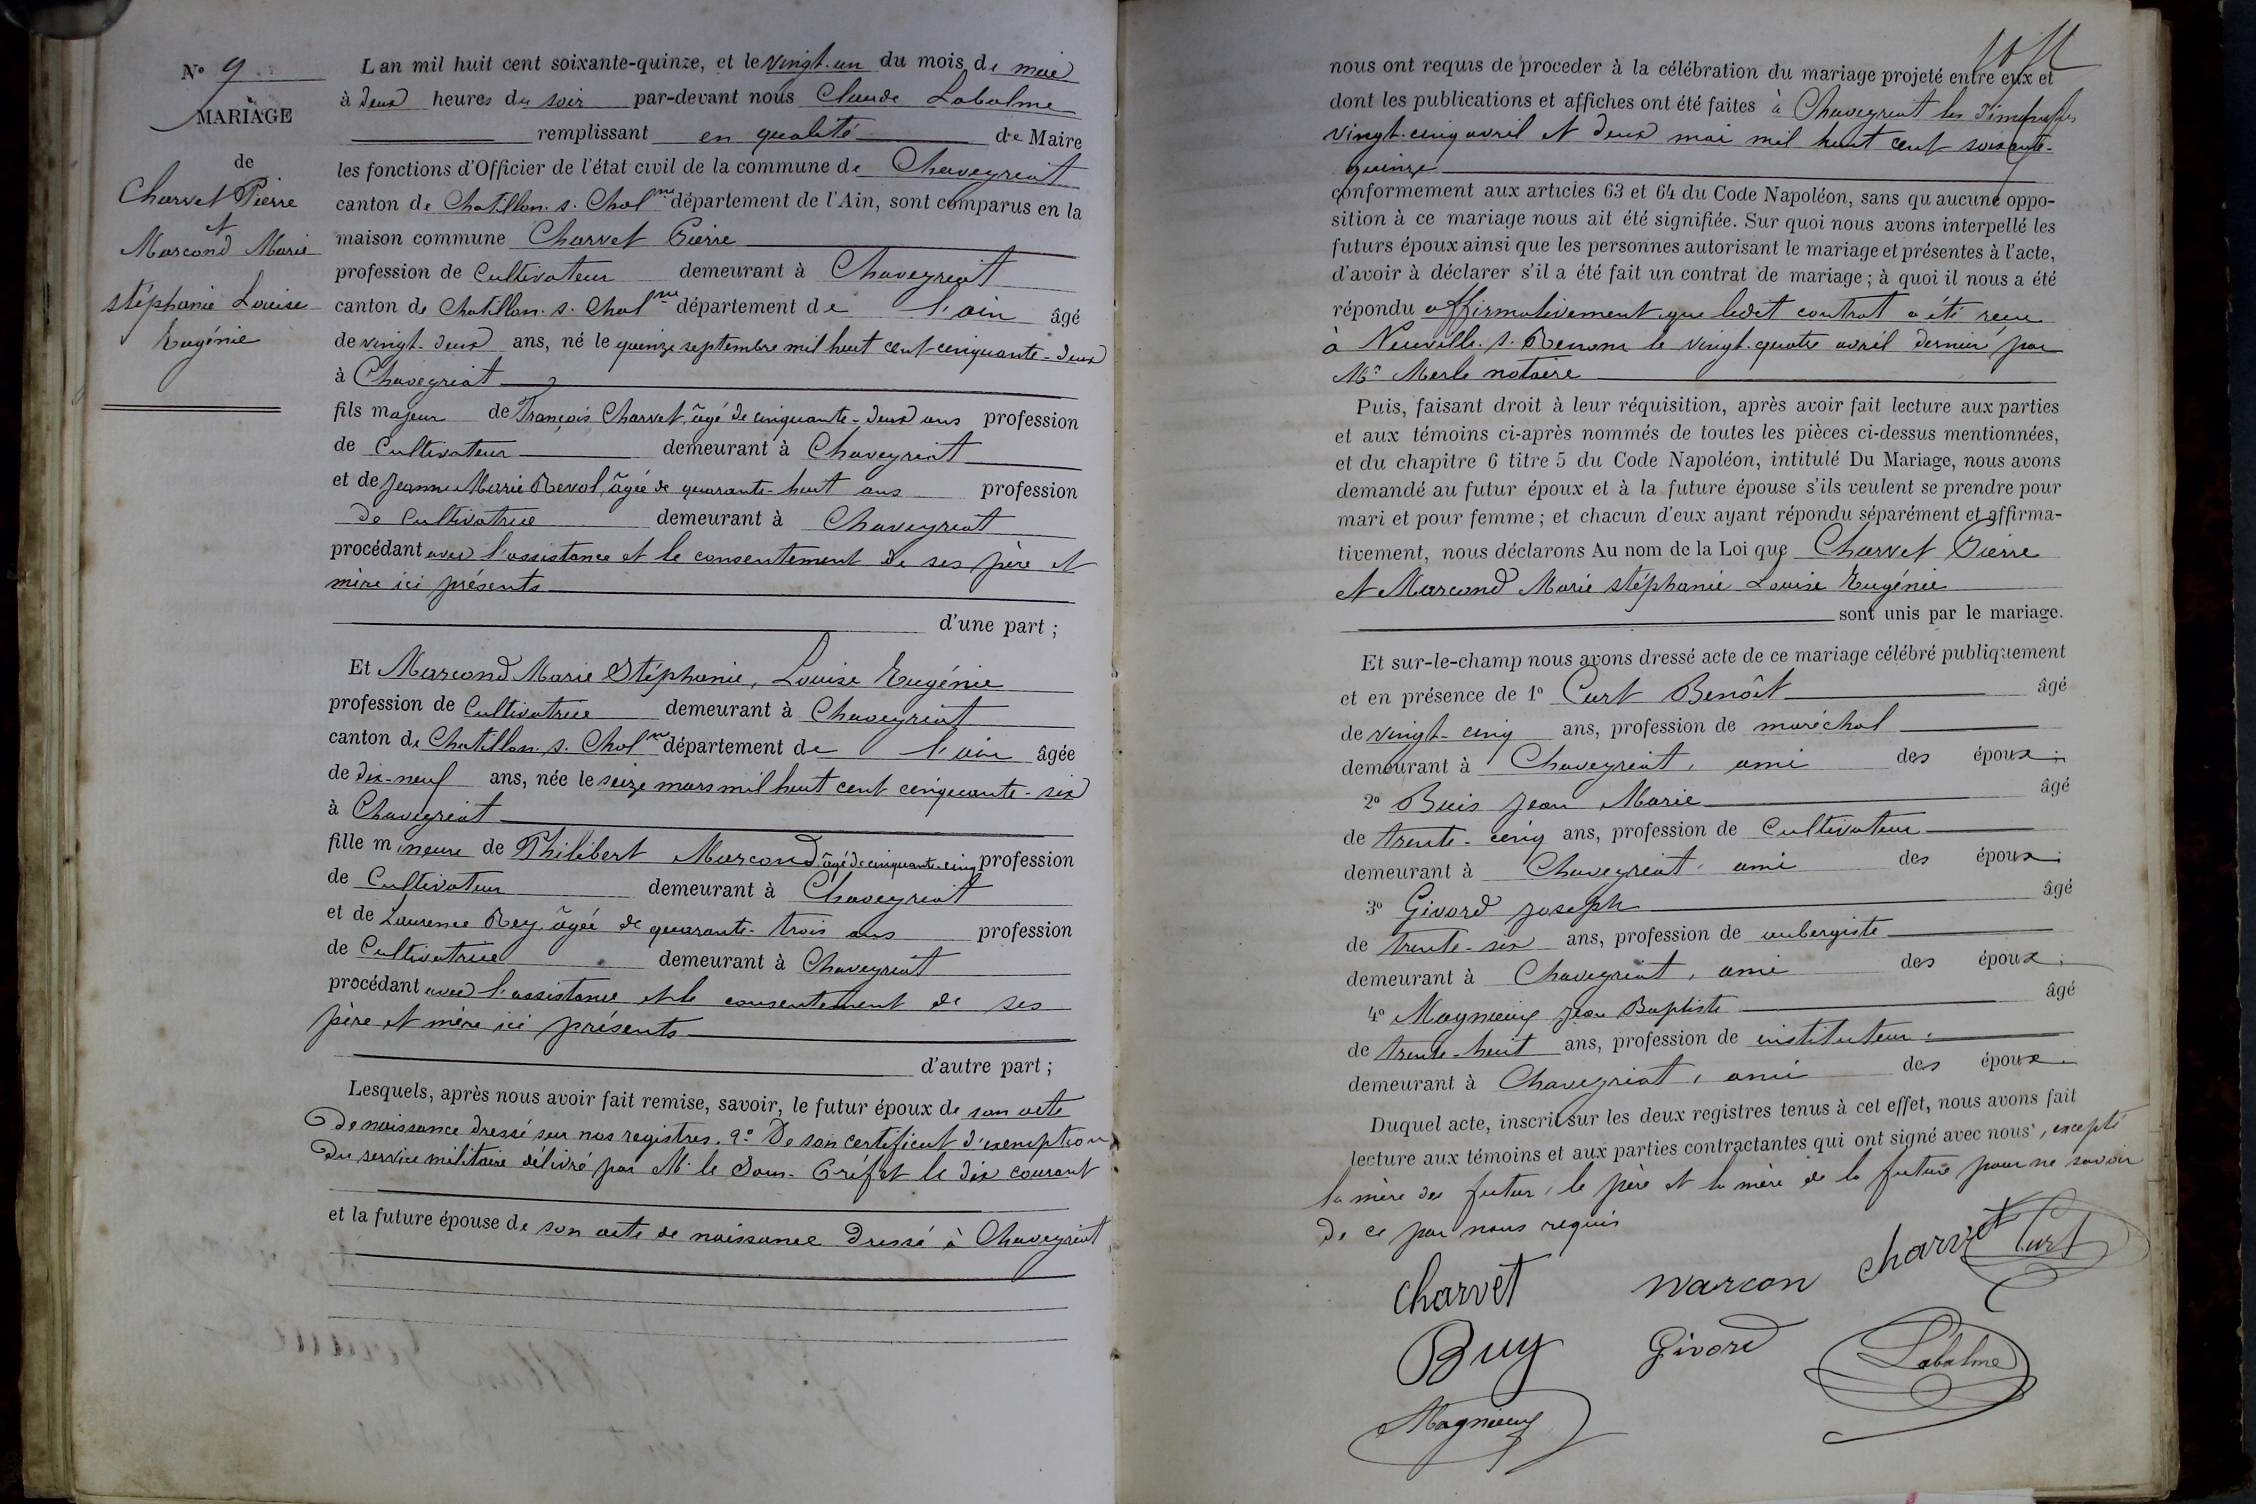 N° 9
MARIAGE
de
Charvet Pierre
et
Marcond Marie
stéphanie Louise
Eugénie
L an mil huit cent soixante-quinze, et le vingt-un du mois de mai
à deux heures du soir par-devant nous Claude Labalme
remplissant en qualité de Maire
les fonctions d'Officier de l'état civil de la commune de Chaveyriat
canton de Chatillon. s. Chalne département de l'Ain, sont comparus en la
maison commune Charvet Pierre
profession de Cultivateur demeurant à Chaveyriat
canton de Chatillon. s. Chalne département de l'ain âgé
de vingt-deux ans, né le quinze septembre mil huit cent cinquante-deux
à Chaveyriat
fils majeur de François Charvet, âgé de cinquante-deux ans profession
de Cultivateur demeurant à Chaveyriat
et de Jeanne Marie Revol, âgée de quarante-huit ans profession
de Cultivatrice demeurant à Chaveyriat
procédant avec l'assistance et le consentement de ses père et
mère ici présents
d'une part ;
Et Marcond Marie Stéphanie, Louise Eugénie
profession de Cultivatrice demeurant à Chaveyriat
canton de Chatillon. s. Chalne département de l'ain âgée
de dix-neuf ans, née le seize mars mil huit cent cinquante-six
à Chaveyriat
fille mineure de Philibert Marcond, âgé de cinquante-cinq profession
de Cultivateur demeurant à Chaveyriat
et de Laurence Rey, âgée de quarante-trois ans profession
de Cultivatrice demeurant à Chaveyriat
procédant avec l'assistance et le consentement de ses
père et mère ici présents
d'autre part ;
Lesquels, après nous avoir fait remise, savoir, le futur époux de son acte
de naissance dressé sur nos registres. 2° De son certificat d'exemption
du service militaire délivré par M. le Sous-Préfet le dix courant
et la future épouse de son acte de naissance dressé à Chaveyriat
nous ont requis de proceder à la célébration du mariage projeté entre eux et
dont les publications et affiches ont été faites à Chaveyriat les dimanches
vingt-cinq avril et deux mai mil huit cent soixante-
quinze
conformement aux articles 63 et 64 du Code Napoléon, sans qu aucune oppo-
sition à ce mariage nous ait été signifiée. Sur quoi nous avons interpellé les
futurs époux ainsi que les personnes autorisant le mariage et présentes à l'acte,
d'avoir à déclarer s'il a été fait un contrat de mariage ; à quoi il nous a été
répondu affirmativement que ledit contrat a été reçu
à Neuville. s. Renom le vingt-quatre avril dernier par
Me Merle notaire
Puis, faisant droit à leur réquisition, après avoir fait lecture aux parties
et aux témoins ci-après nommés de toutes les pièces ci-dessus mentionnées,
et du chapitre 6 titre 5 du Code Napoléon, intitulé Du Mariage, nous avons
demandé au futur époux et à la future épouse s'ils veulent se prendre pour
mari et pour femme ; et chacun d'eux ayant répondu séparément et affirma-
tivement, nous déclarons Au nom de la Loi que Charvet Pierre
et Marcond Marie stéphanie Louise Eugénie
sont unis par le mariage.
Et sur-le-champ nous avons dressé acte de ce mariage célébré publiquement
et en présence de 1° Curt Benoît âgé
de vingt-cinq ans, profession de maréchal
demeurant à Chaveyriat, ami des époux ;
2° Buis Jean Marie âgé
de trente-cinq ans, profession de Cultivateur
demeurant à Chaveyriat, ami des époux ;
3° Givord Joseph âgé
de trente-six ans, profession de aubergiste
demeurant à Chaveyriat, ami des époux ;
4° Magnieux Jean Baptiste âgé
de trente-huit ans, profession de instituteur
demeurant à Chaveyriat, ami des époux.
Duquel acte, inscrit sur les deux registres tenus à cet effet, nous avons fait
lecture aux témoins et aux parties contractantes qui ont signé avec nous, excepté
la mère du futur, le père et la mère de la future pour ne savoir
de ce par nous requis
Charvet Marcon Charvet Curt
Buy Givord Labalme
Magnieux